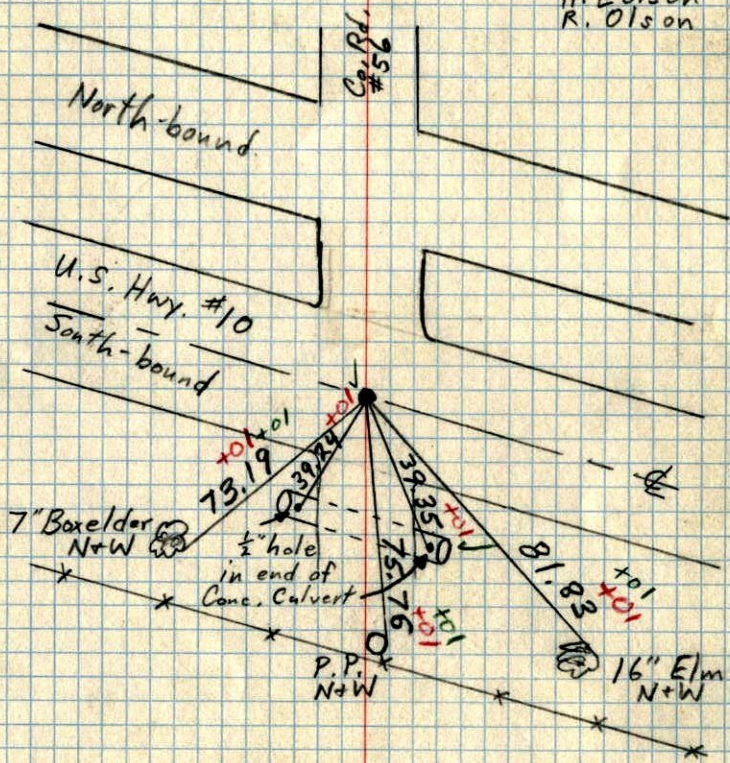 R. Olson
Co. Rd.
#56
North-bound
U.S. Hwy. #10
South-bound
+01 +01
73.19
+01
39.24
39.35
+01
75.76
+01 +01
81.83
+01
+01
7" Boxelder
N+W
1/2" hole
in end of
Conc. Culvert
P.P.
N+W
16" Elm
N+W
℄